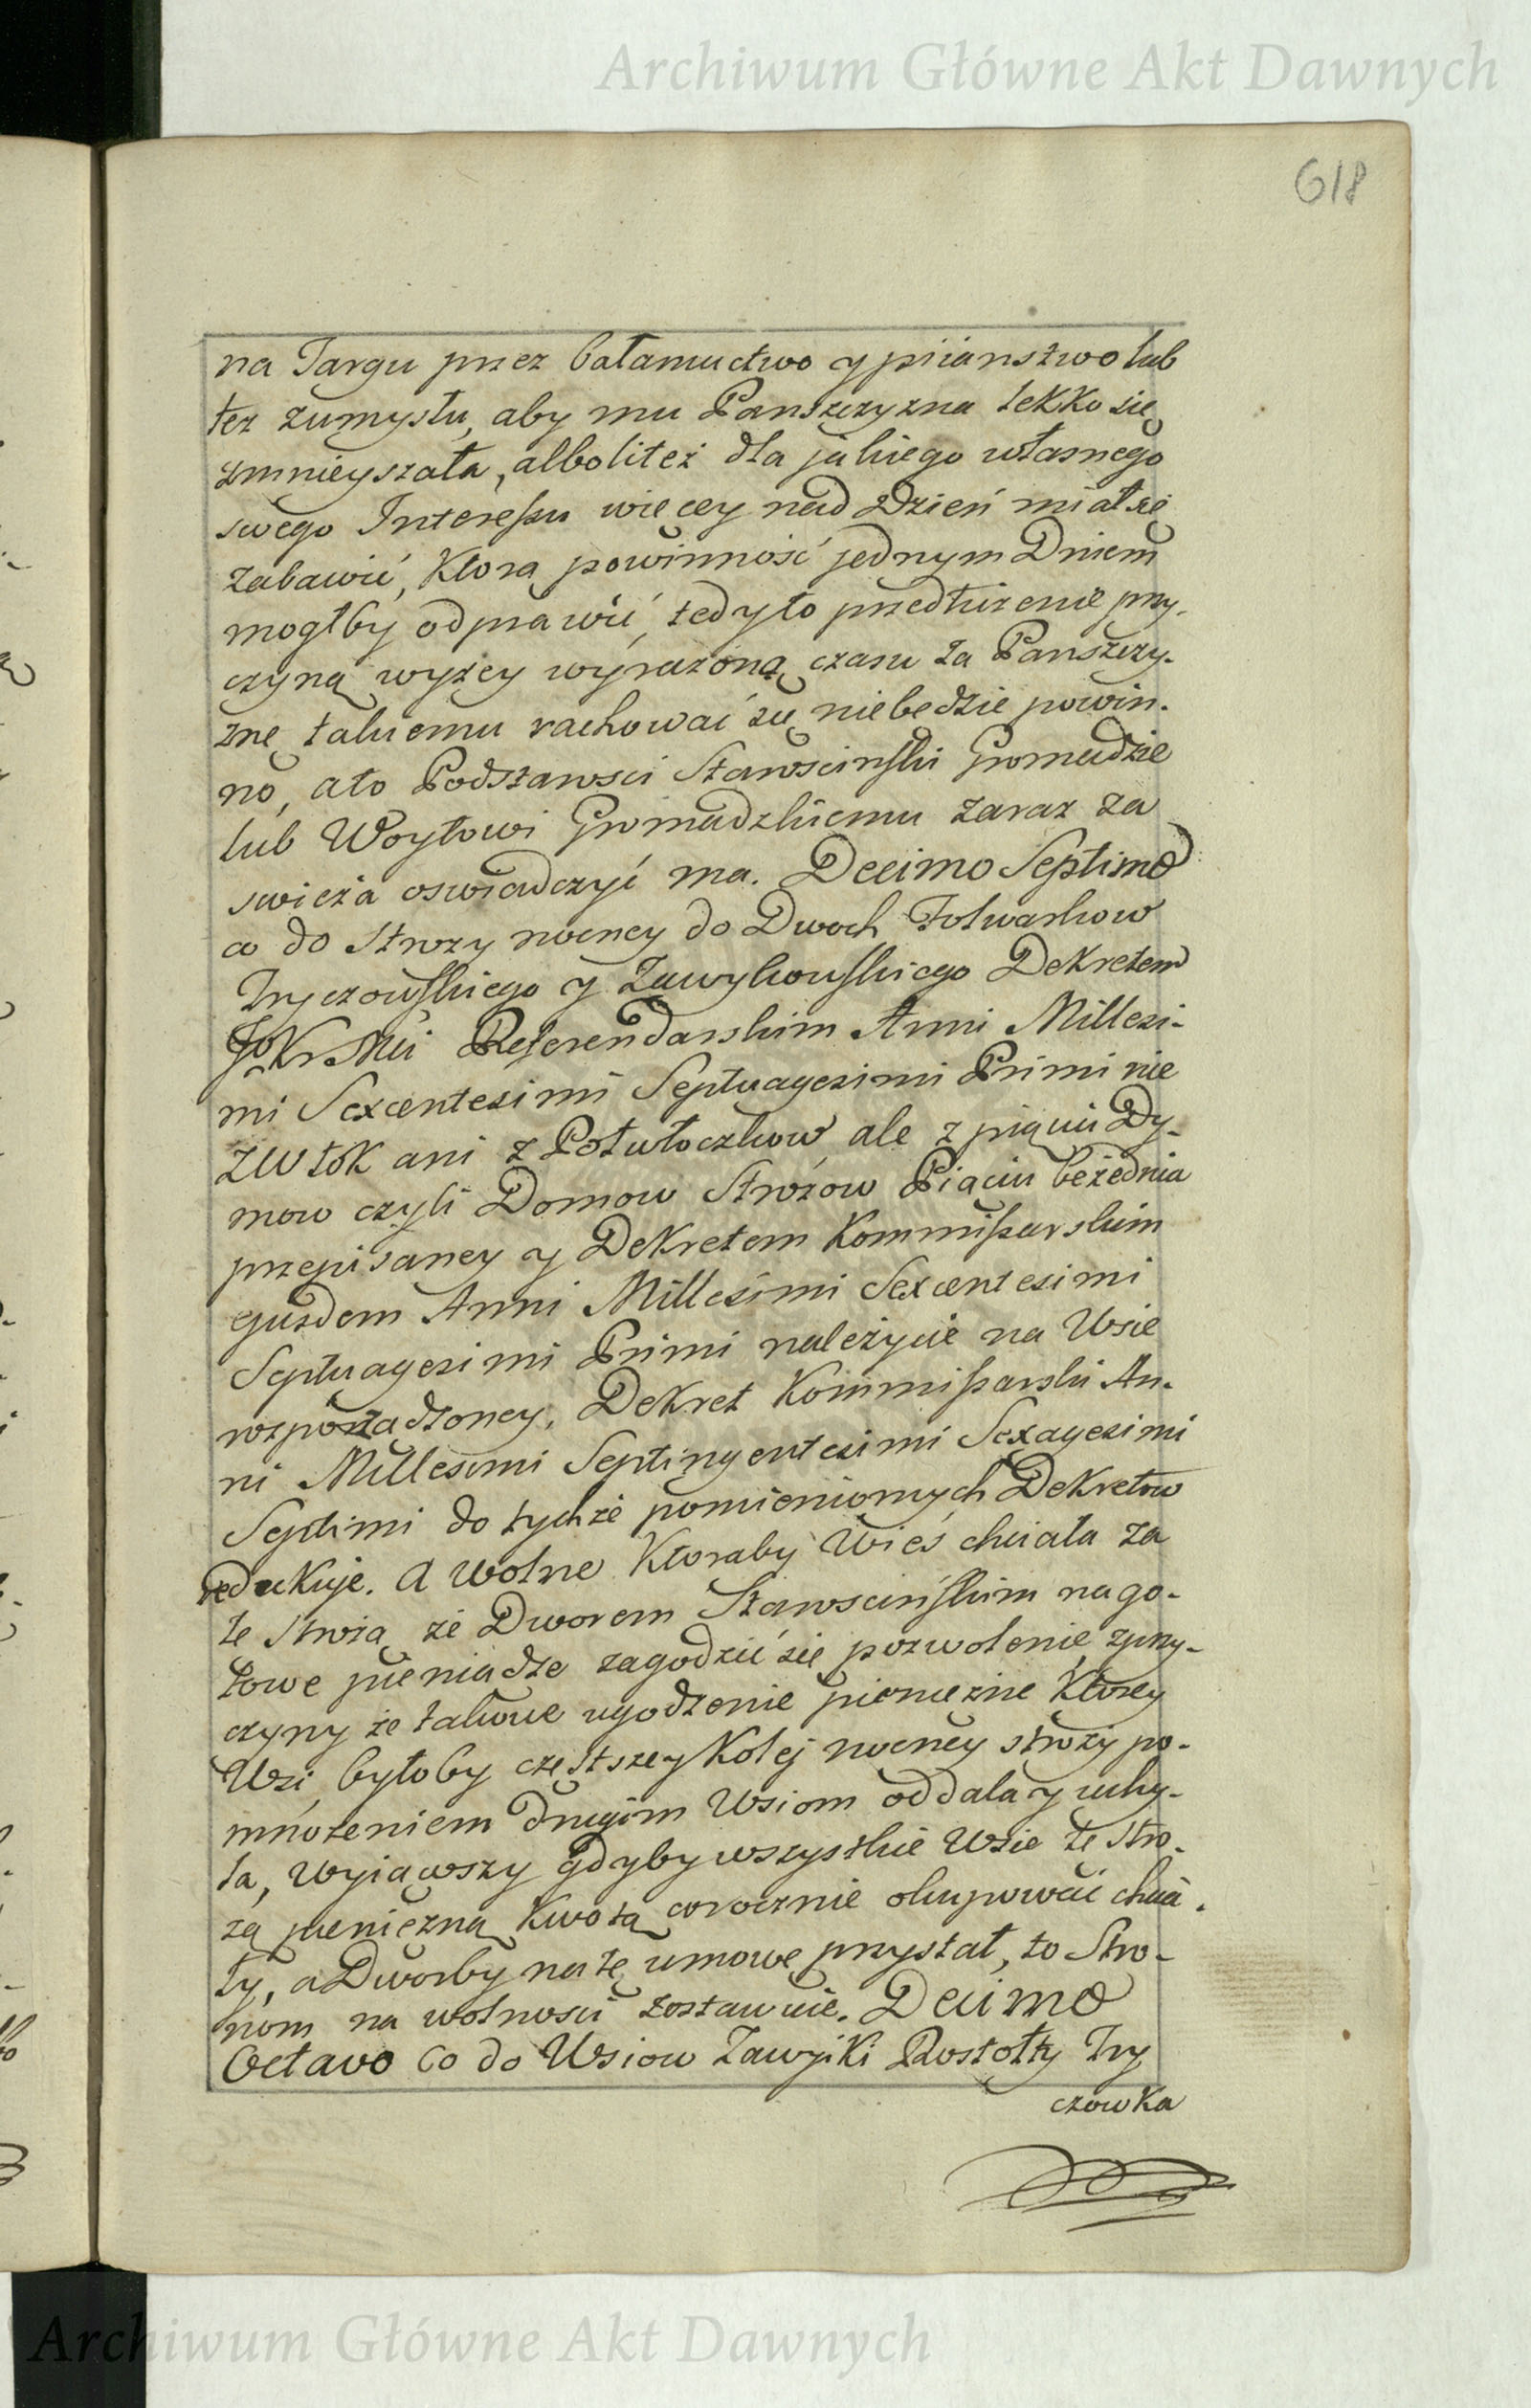 Archiwum Główne Akt Dawnych
618
na Targu przez bałamuctwo y piianstwo lub
tez zumysłu, aby mu Panszczyzna lekko się
zmnieyszała, albolitez dla jakiego własnego
swego Interessu więcey nad Dzień miał się
zabawić, Ktorą powinność jednym Dniem
mogłby odprawić, tedy to przedłużenie przy-
czyną wyżey wyrazoną czasu za Panszczy-
znę takiemu rachować się niebędzie powin-
no, a to Podstarosci Starościnski Gromadzie
lub Woytowi Gromadzkiemu zaraz za
swieża oswiadczyć ma. Decimo Septimo
co do Strozy nocney do Dwoch Folwarkow
Tryczowskiego y Zawykowskiego Dekretem
JoKrMci Referendarskim Anni Millesi-
mi Sexcentesimi Septuagesimi Primi nie
zWłok ani z Połwłoczkow ale z pięciu Dy-
mow czyli Domow Strożow Pięciu beżednia
przepisaney y Dekretem Kommissarskim
ejusdem Anni Millesimi Sexcentesimi
Septuagesimi Primi należycie na Wsie
rozporządzoney, Dekret Kommissarski An-
ni Millesimi Septingentesimi Sexagesimi
Septimi do tychże pomienionych Dekretow
redukuje. A wolne Ktoraby Wieś chciała za
te Strożą ze Dworem Starościńskim na go-
towe pieniądze zagodzić się pozwolenie zprzy-
czyny że takowe ugodzenie pieniężne Ktorey
Wsi, byłoby częstszey Kolej nocney stroży po-
mnożeniem drugim Wsiom oddala y uchy-
la, wyiąwszy gdyby wszystkie Wsie te Stro-
żą pieniężną Kwotą corocznie okupować chcia-
ły, a Dworby na te umowę przystał, to Stro-
nom na wolności zostawuie. Decimo
Octavo Co do Wsiow Zawyki Rostołty Try
czowka
Archiwum Główne Akt Dawnych